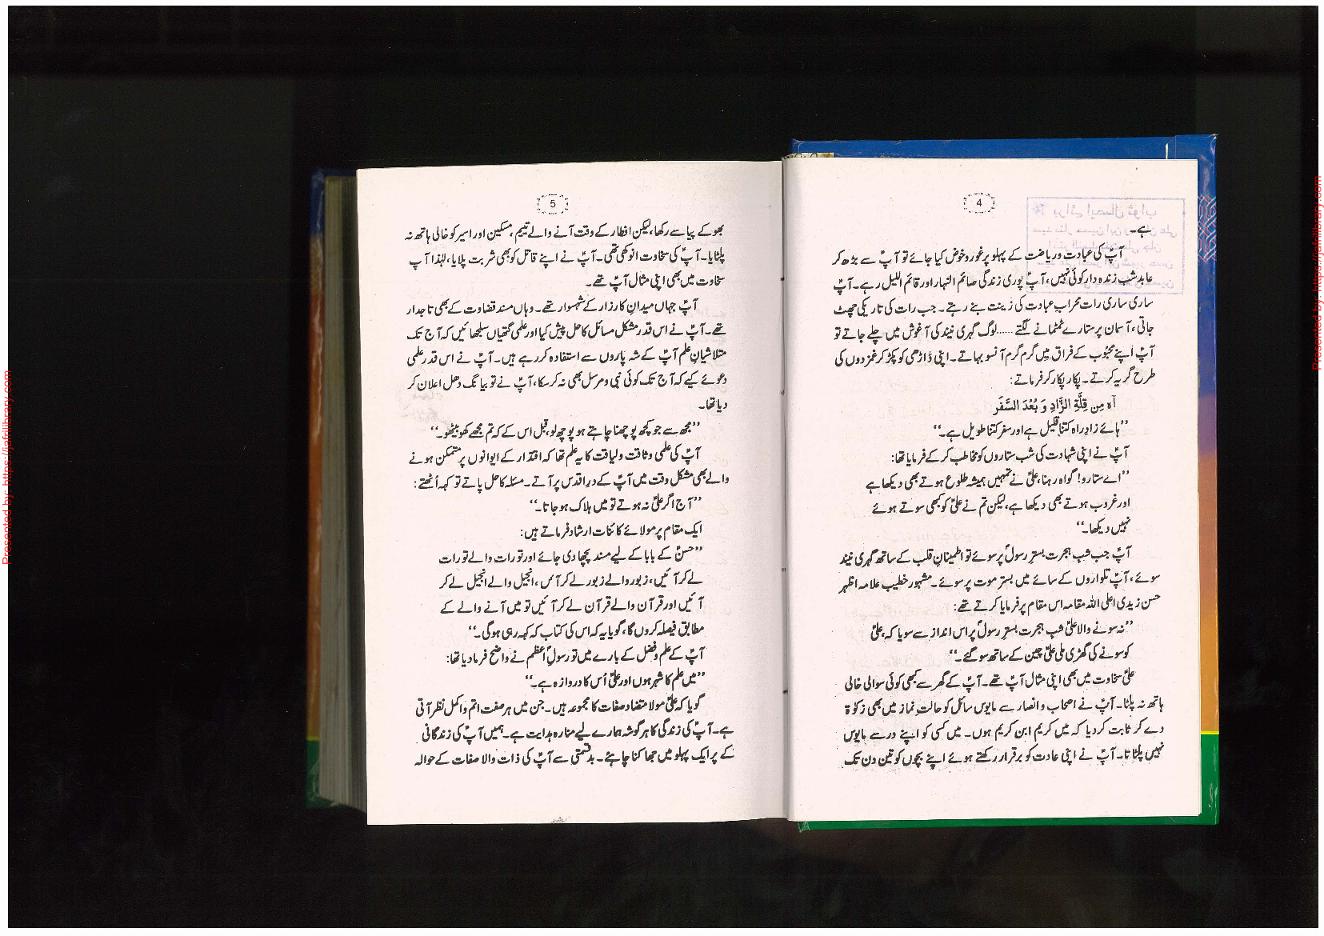 4
ہے۔
آپؑ کی عبادت و ریاضت کے پہلو پر غور و خوض کیا جائے تو آپؑ سے بڑھ کر
عابدِ شب زندہ دار کوئی نہیں، آپؑ پوری زندگی صائم النہار اور قائم اللیل رہے۔ آپؑ
ساری ساری رات محراب عبادت کی زینت بنے رہتے۔ جب رات کی تاریکی چھٹ
جاتی، آسمان پر ستارے ٹمٹمانے لگتے ...... لوگ گہری نیند کی آغوش میں چلے جاتے تو
آپؑ اپنے محبوب کے فراق میں گرم گرم آنسو بہاتے۔ اپنی ڈاڑھی کو پکڑ کر غمزدوں کی
طرح گریہ کرتے۔ پکار پکار کر فرماتے:
آہ مِن قِلَّۃِ الزَّادِ وَ بُعْدَ السَّفَر
’’ہائے زادِ راہ کتنا قلیل ہے اور سفر کتنا طویل ہے۔‘‘
آپؑ نے اپنی شہادت کی شب ستاروں کو مخاطب کر کے فرمایا تھا:
’’اے ستارو! گواہ رہنا، علیؑ نے تمہیں ہمیشہ طلوع ہوتے بھی دیکھا ہے
اور غروب ہوتے بھی دیکھا ہے، لیکن تم نے علیؑ کو کبھی سوتے ہوئے
نہیں دیکھا۔‘‘
آپؑ جب شب ہجرت بسترِ رسولؐ پر سوئے تو اطمینانِ قلب کے ساتھ گہری نیند
سوئے، آپؑ تلواروں کے سائے میں بستر موت پر سوئے۔ مشہور خطیب علامہ اظہر
حسن زیدی اعلی اللہ مقامہ اس مقام پر فرمایا کرتے تھے:
’’نہ سونے والا علیؑ شبِ ہجرت بسترِ رسولؐ پر اس انداز سے سویا کہ علیؑ
کو سونے کی گھڑی ملی علیؑ چین کے ساتھ سو گئے۔‘‘
علیؑ سخاوت میں بھی اپنی مثال آپؑ تھے۔ آپؑ کے گھر سے کبھی کوئی سوالی خالی
ہاتھ نہ پلٹا۔ آپؑ نے اصحاب و انصار سے مایوس سائل کو حالتِ نماز میں بھی زکوٰۃ
دے کر ثابت کردیا کہ میں کریم ابن کریم ہوں۔ میں کسی کو اپنے در سے مایوس
نہیں پلٹاتا۔ آپؑ نے اپنی عادت کو برقرار رکھتے ہوئے اپنے بچوں کو تین دن تک
5
بھوکے پیاسے رکھا، لیکن افطار کے وقت آنے والے یتیم، مسکین اور اسیر کو خالی ہاتھ نہ
پلٹایا۔ آپؑ کی سخاوت انوکھی تھی۔ آپؑ نے اپنے قاتل کو بھی شربت پلایا، لہٰذا آپ
سخاوت میں بھی اپنی مثال آپؑ تھے۔
آپؑ جہاں میدانِ کارزار کے شہسوار تھے۔ وہاں مسند قضاوت کے بھی تاجدار
تھے۔ آپؑ نے اس قدر مشکل مسائل کا حل پیش کیا اور علمی گتھیاں سلجھائیں کہ آج تک
متلاشیانِ علم آپؑ کے شہ پاروں سے استفادہ کر رہے ہیں۔ آپؑ نے اس قدر علمی
دعوے کیے کہ آج تک کوئی نبی و مرسل بھی نہ کرسکا، آپؑ نے تو ببانگ دھل اعلان کر
دیا تھا۔
’’مجھ سے جو کچھ پوچھنا چاہتے ہو پوچھ لو، قبل اس کے کہ تم مجھے کھو بیٹھو۔‘‘
آپؑ کی علمی وثاقت و لیاقت کا یہ علم تھا کہ اقتدار کے ایوانوں پر متمکن ہونے
والے بھی مشکل وقت میں آپؑ کے درِ اقدس پر آتے۔ مسئلہ کا حل پاتے تو کہہ اُٹھتے:
’’آج اگر علیؑ نہ ہوتے تو میں ہلاک ہو جاتا۔‘‘
ایک مقام پر مولائے کائنات ارشاد فرماتے ہیں:
’’حسنؑ کے بابا کے لیے مسند بچھا دی جائے اور تورات والے تورات
لے کر آئیں، زبور والے زبور لے کر آئیں، انجیل والے انجیل لے کر
آئیں اور قرآن والے قرآن لے کر آئیں تو میں آنے والے کے
مطابق فیصلہ کروں گا، گویا یہ کہ اس کی کتاب کہہ رہی ہوگی۔‘‘
آپؑ کے علم و فضل کے بارے میں تو رسولِ اعظمؐ نے واضح فرما دیا تھا:
’’میں علم کا شہر ہوں اور علیؑ اُس کا دروازہ ہے۔‘‘
گویا کہ علیؑ مولا متضاد صفات کا مجموعہ ہیں۔ جن میں ہر صفت اتم و اکمل نظر آتی
ہے۔ آپؑ کی زندگی کا ہر گوشہ ہمارے لیے منارہ ہدایت ہے۔ ہمیں آپؑ کی زندگانی
کے ہر ایک پہلو میں جھانکنا چاہئے۔ بدقسمتی سے آپؑ کی ذات والا صفات کے حوالہ
Presented by: https://jafrilibrary.com
Presented by: https://jafrilibrary.com